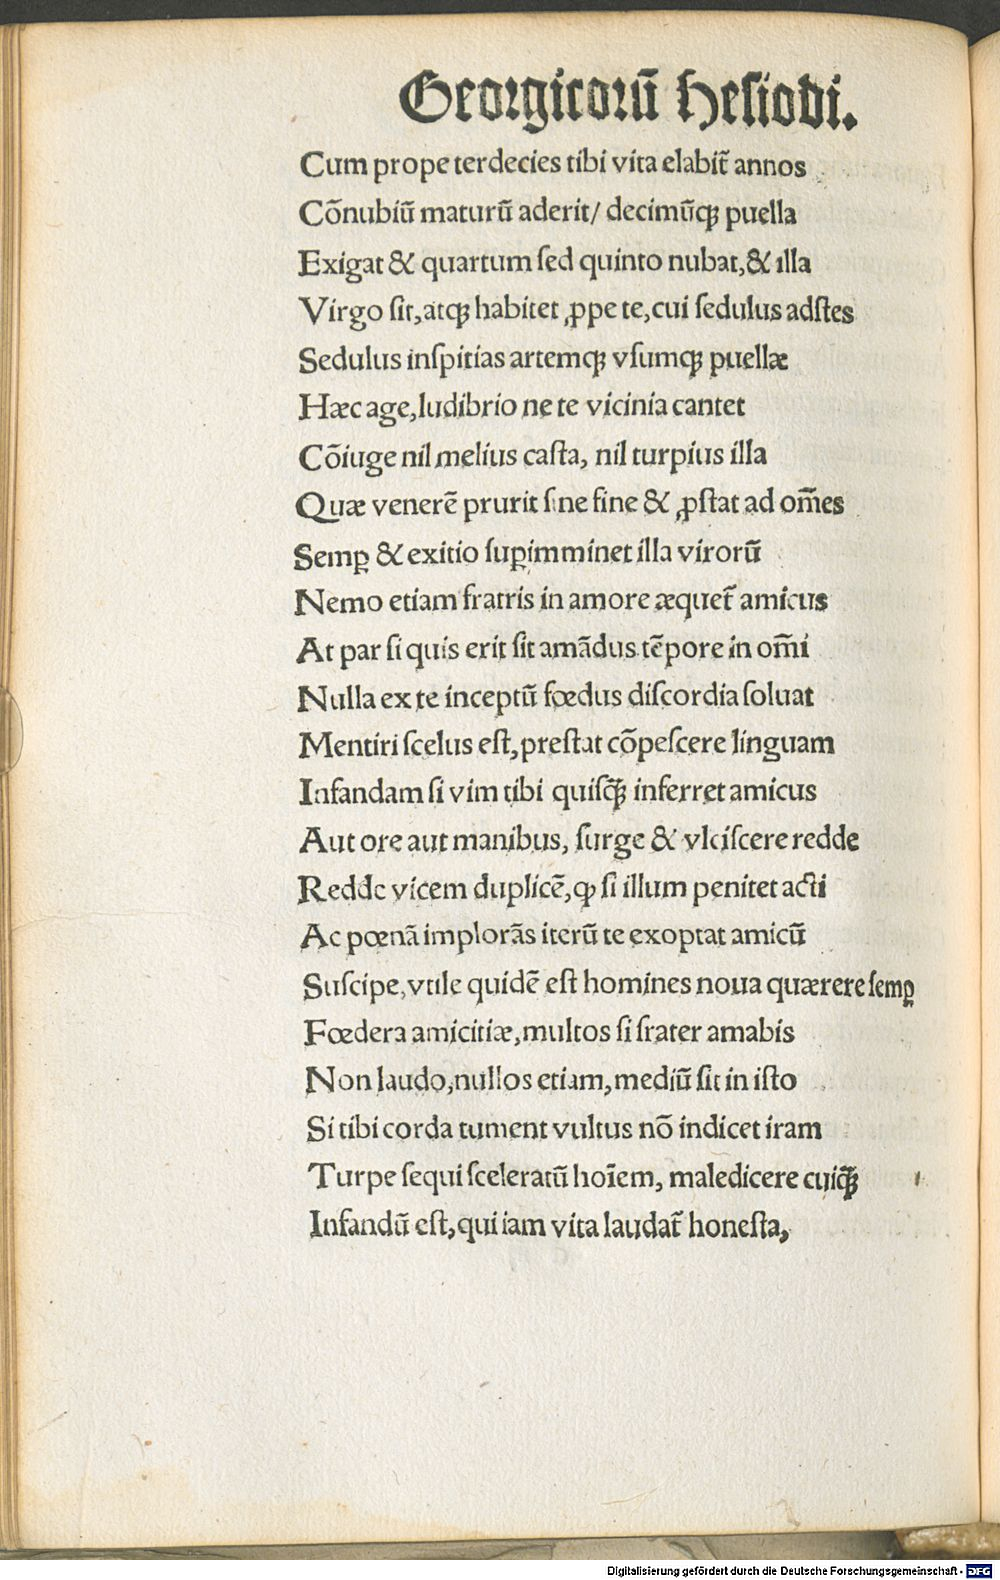 Georgicorū Hesiodi.
Cum prope terdecies tibi vita elabit̄ annos
Cōnubiū maturū aderit/ decimūqꝫ puella
Exigat & quartum sed quinto nubat,& illa
Virgo sit,atqꝫ habitet ꝓpe te,cui sedulus adstes
Sedulus inspitias artemqꝫ vsumqꝫ puellæ
Hæc age,ludibrio ne te vicinia cantet
Cōiuge nil melius casta, nil turpius illa
Quæ venerē prurit sine fine & ꝓstat ad om̄es
Semꝑ & exitio suꝑimminet illa virorū
Nemo etiam fratris in amore æquet̄ amicus
At par si quis erit sit amādus tēpore in om̄i
Nulla ex te inceptū fœdus discordia soluat
Mentiri scelus est,prestat cōpescere linguam
Infandam si vim tibi quisq̄ꝫ inferret amicus
Aut ore aut manibus, surge & vlciscere redde
Redde vicem duplicē,ꝙ si illum penitet acti
Ac pœnā implorās iterū te exoptat amicū
Suscipe,vtile quidē est homines noua quærere semꝑ
Fœdera amicitiæ,multos si frater amabis
Non laudo,nullos etiam,mediū sit in isto
Si tibi corda tument vultus nō indicet iram
Turpe sequi sceleratū hoīem, maledicere cuiq̄ꝫ
Infandū est,qui iam vita laudat̄ honesta,
Digitalisierung gefördert durch die Deutsche Forschungsgemeinschaft - DFG